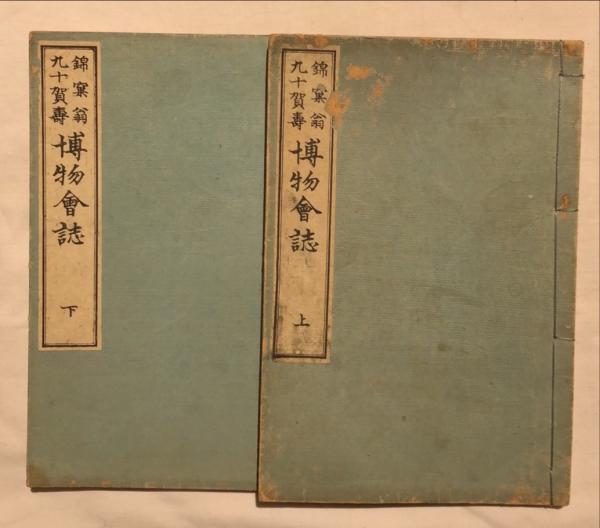 錦窠翁
九十賀壽
博物會誌
上
錦窠翁
九十賀壽
博物會誌
下